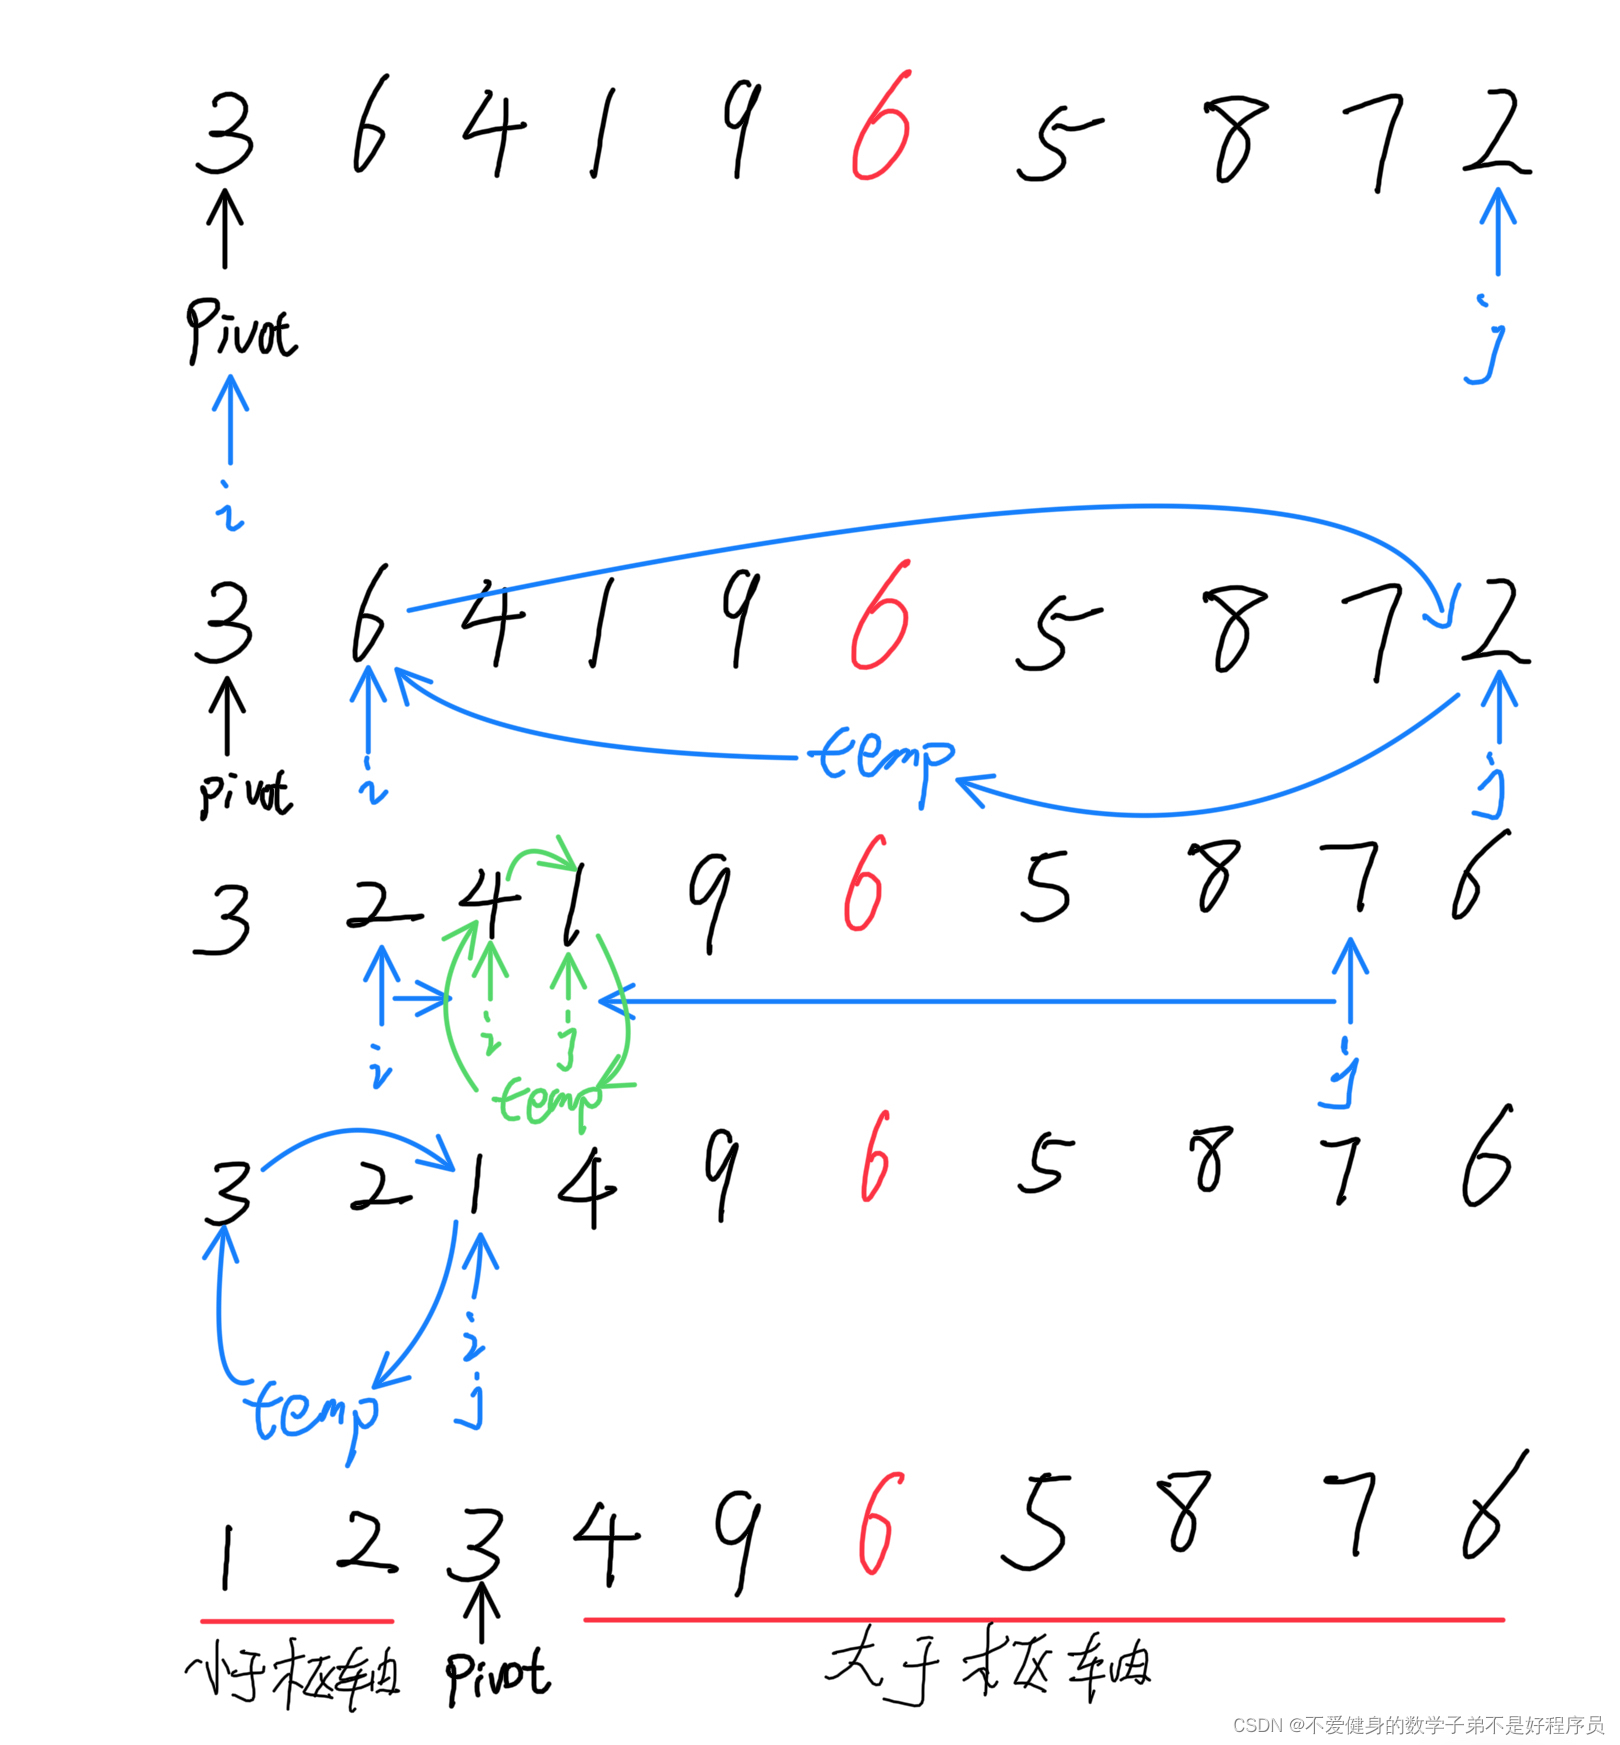 3 6 4 1 9 6 5 8 7 2
Pivot j
i
3 6 4 1 9 6 5 8 7 2
temp
pivot i j
3 2 4 1 9 6 5 8 7 6
i j
i j
temp
3 2 1 4 9 6 5 8 7 6
i
j
temp
1 2 3 4 9 6 5 8 7 6
小于枢轴 Pivot 大于枢轴
CSDN @不爱健身的数学子弟不是好程序员